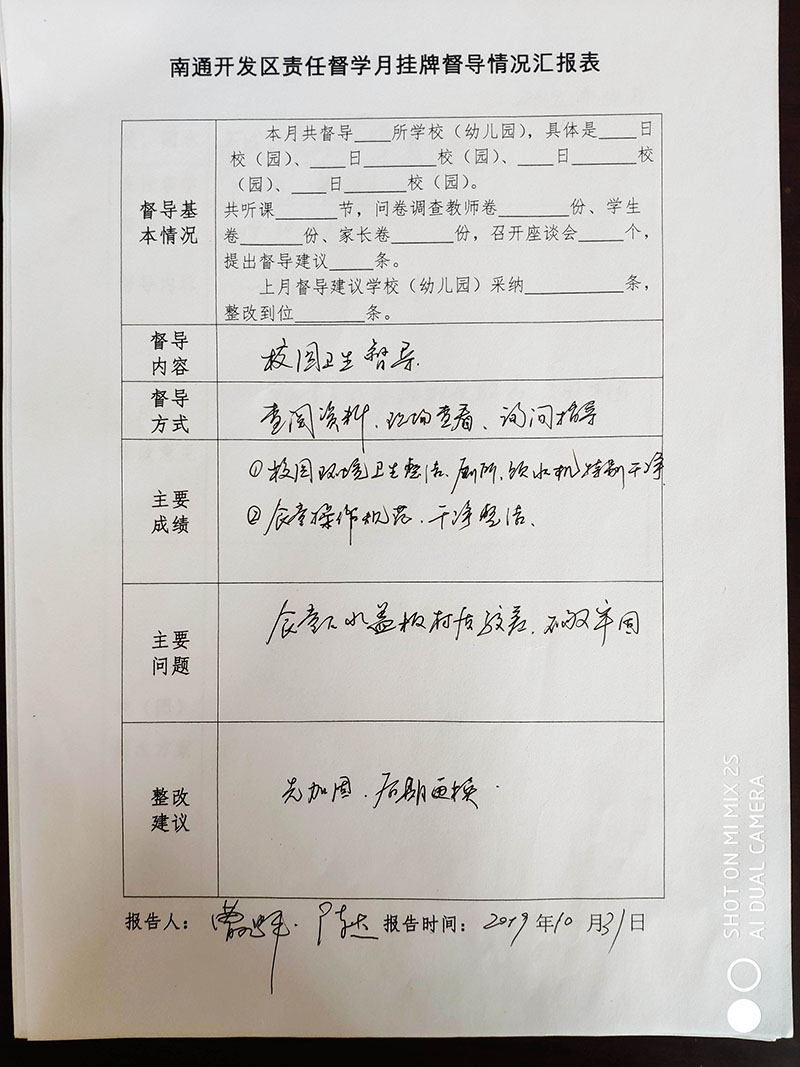 南通开发区责任督学月挂牌督导情况汇报表
督导基
本情况
本月共督导____所学校（幼儿园），具体是____日
校（园）、____日________校（园）、____日_______校
（园）、____日_______校（园）。
共听课_______节，问卷调查教师卷___________份、学生
卷_______份、家长卷_______份，召开座谈会_____个，
提出督导建议_____条。
上月督导建议学校（幼儿园）采纳___________条，
整改到位________条。
督导
内容
校园卫生督导.
督导
方式
查阅资料、现场查看、询问指导
主要
成绩
①校园环境卫生整洁、厕所、饮水机特别干净
②食堂操作规范、干净整洁、
主要
问题
食堂下水盖板材质较差、不够牢固
整改
建议
先加固、后期更换.
报告人： 报告时间：2019年10月31日
SHOT ON MI MIX 2S
AI DUAL CAMERA